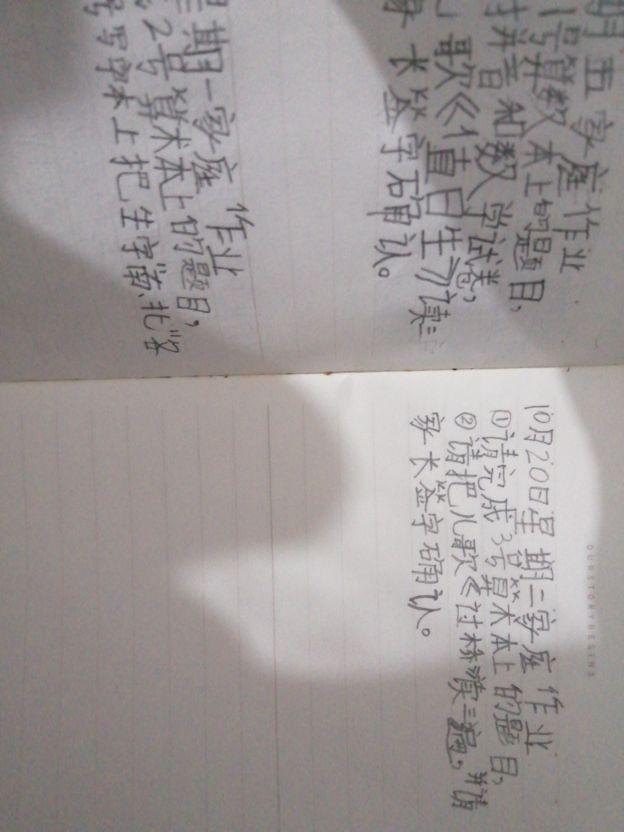 期五家庭作业
1号算数本上的题目,
拼音和数学试卷,
儿歌《值日生》读三
家长签字确认。
星期一家庭作业
2号算术本上的题目,
号写字本上把生字
10月20日星期二家庭作业
①请完成3号算术本上的题目,
②请把儿歌《过桥》读三遍,并请
家长签字确认。
OURSTORYBEGINS